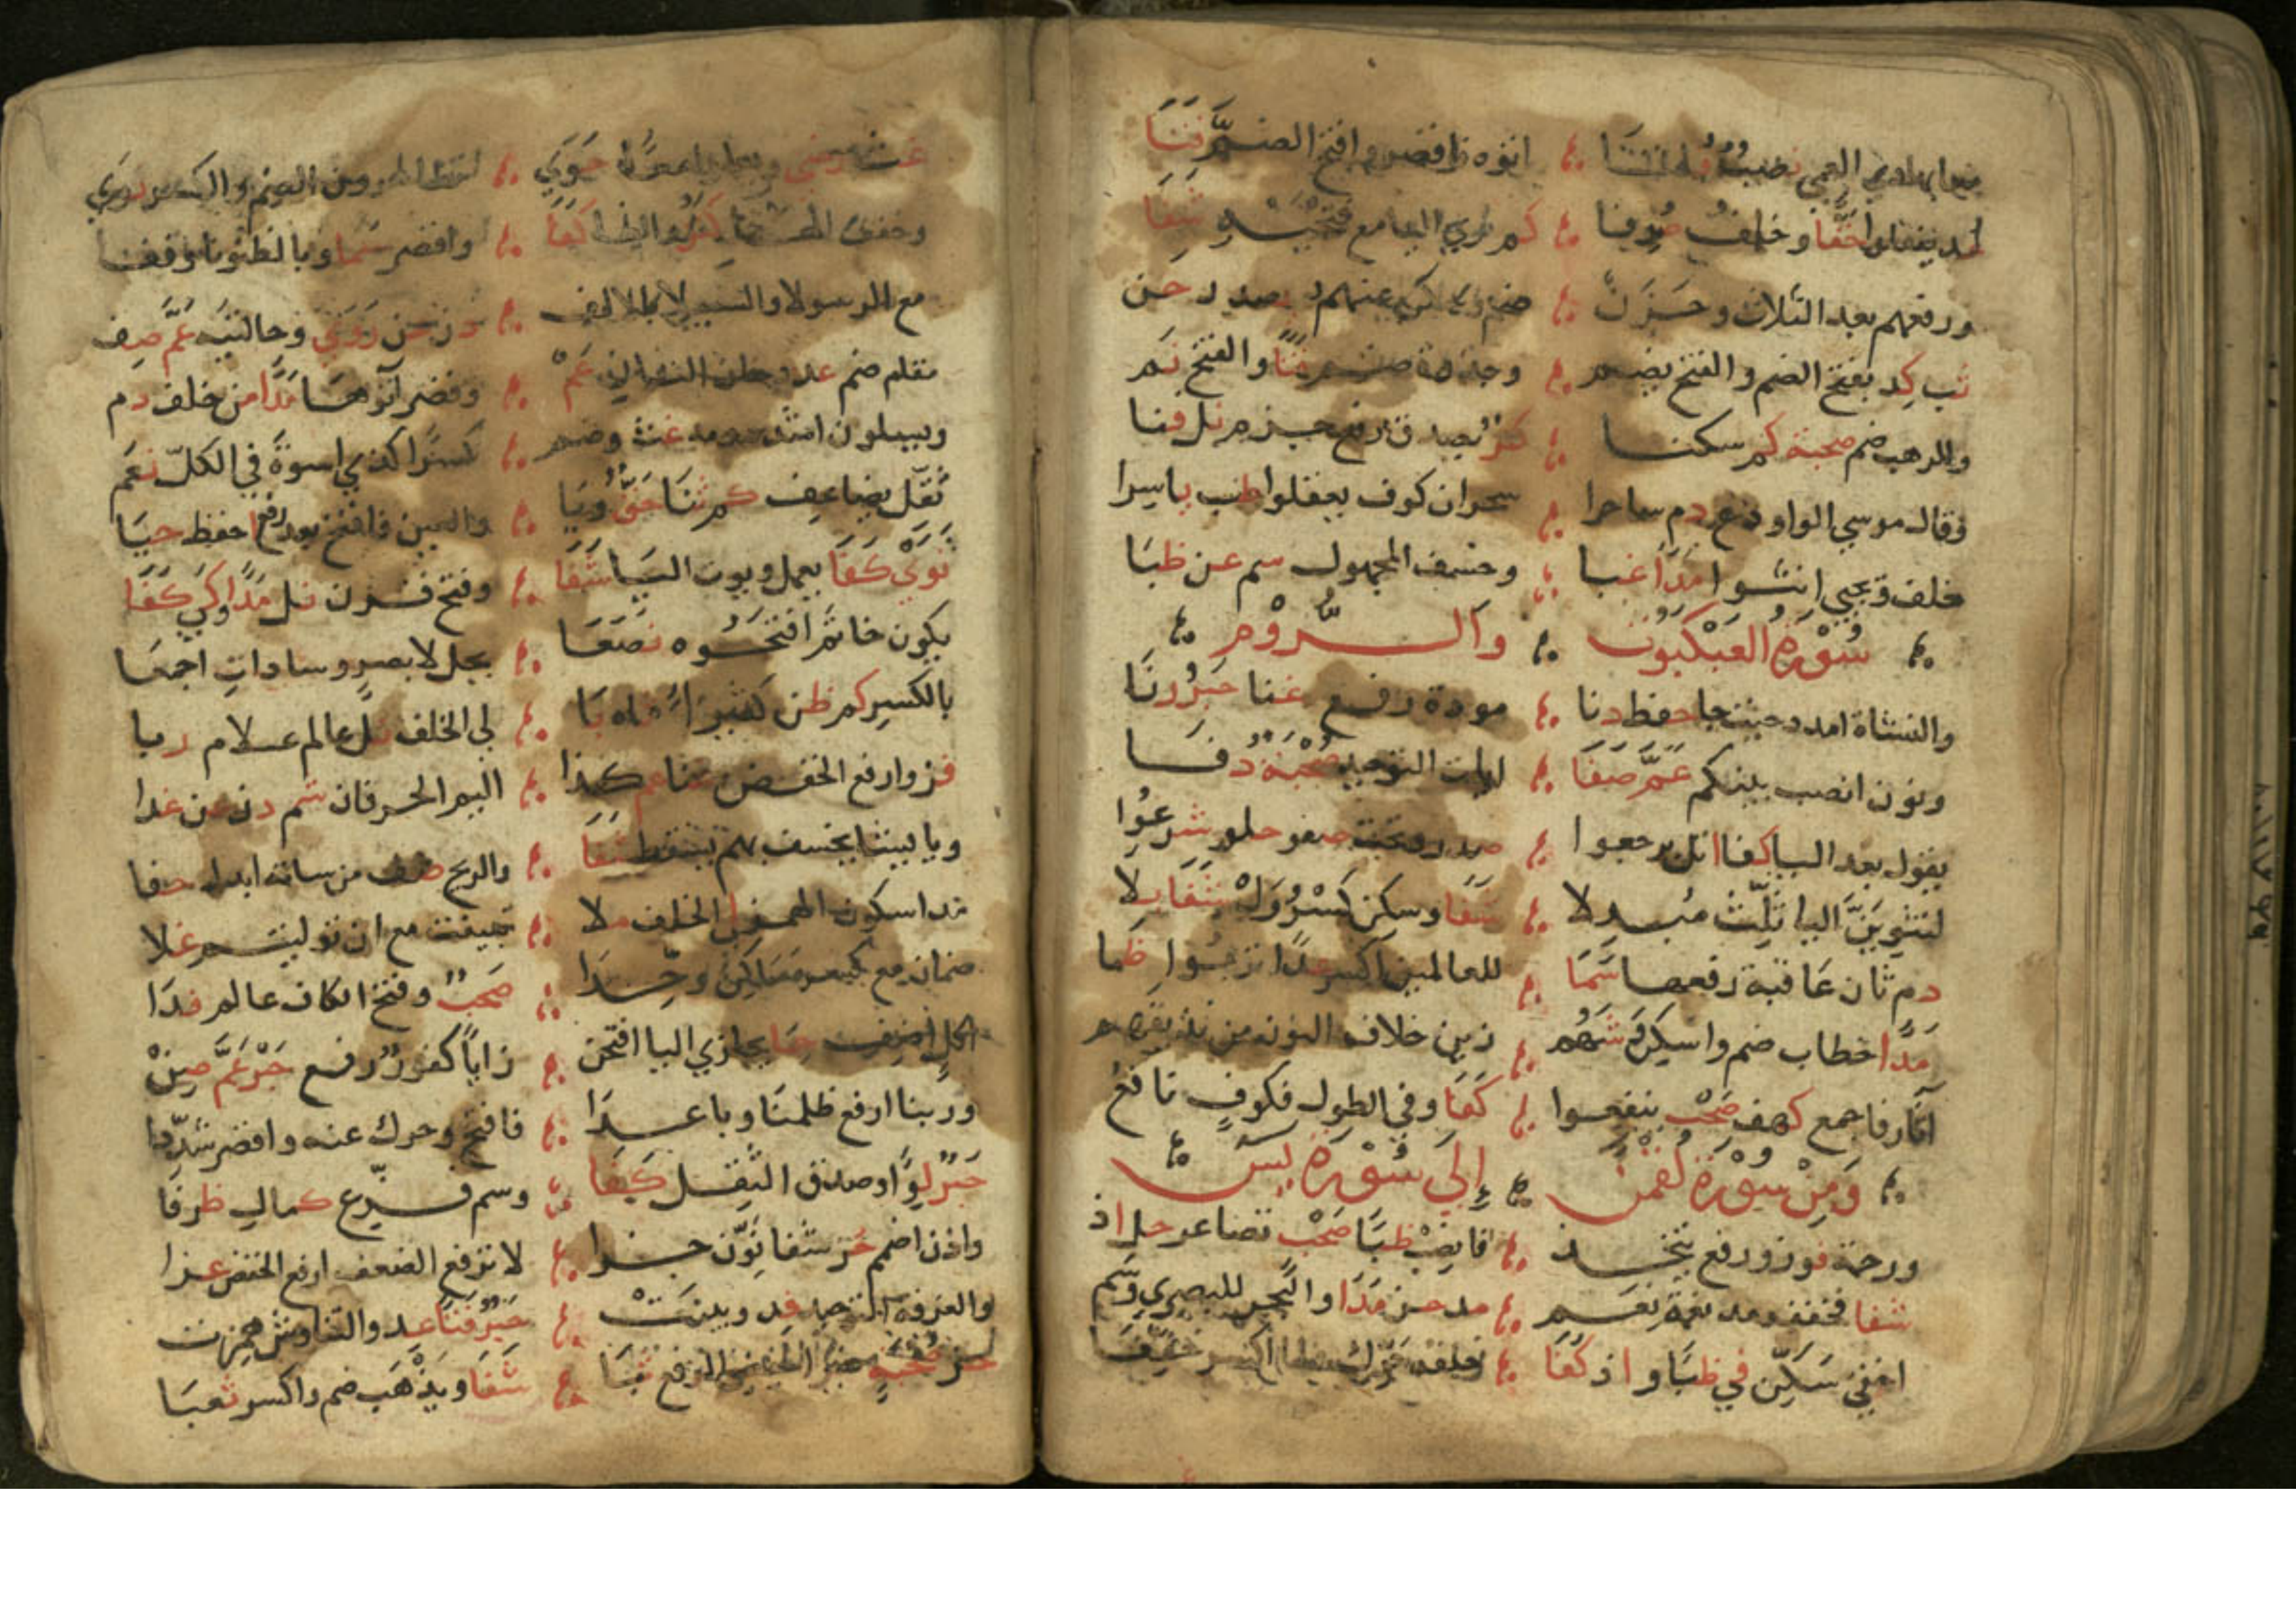 معا بهادي العمي نصب فلتا ؞ اتوه فاقصر وافتح الضم فتنا
يفعلوا حقا وخلف صرفا ؞ كم نري اليا مع فتحيه شفا
ورفعهم بعد الثلاث وحزن ؞ ضم وسكن عنهم يصدر حن
ثب كد بفتح الضم والفتح يضم ؞ وجذوة ضم فتا والفتح نم
والرهب ضم صحبة كم سكنا ؞ كنز يصدق رفع جزم نل فنا
وقال موسي الواو دع دم ساحرا ؞ سحران كوف يعقلوا طب ياسرا
خلف ويجبي انثوا مدا غبا ؞ وخسف المجهول سم عن ظبا
؞ سورة العنكبوت ؞ والروم ؞
والنشاة امدد حيث جا حفظ دنا ؞ مودة رفع غنا حبر رنا
ونون انصب بينكم عم صفا ؞ ايات التوحيد صحبة دفا
يقول بعد اليا كفا اتل يرجعوا ؞ صدر وتحت صفو حلو شرعوا
لنثوين اليا ثلث مبدلا ؞ شفا وسكن كسر ول شفا بلا
دم ثان عاقبة رفعها سما ؞ للعالمين اكسر عدا تربوا ظما
مدا خطاب ضم واسكن شهم ؞ زين خلاف النون من نذيقهم
آثار فاجمع كهف صحب ينفع‍وا ؞ كفا وفي الطول فكوف نافع
؞ ومن سورة لقمن ؞ إلى سورة يس ؞
ورحمة فوز ورفع يتخذ ؞ فانصب ظبا صحب تصاعر حل اذ
شفا فخفف مد نعمة نعم ؞ عد حز مدا والبحر للبصري وسم
اخفي سكن في ظبا واذ كفا ؞ خلقه حرك
غث رضي ويعملوا معا حوي ؞ تظاهرون الضم والكسر نوي
وخفف الها كنز والظا كفا ؞ واقصر سما وبالظنونا وقفا
مع الرسولا والسبيلا بالالف ؞ دن عن روي وحالتيه عم صف
مقام ضم عد دخان الثان عم ؞ وقصر آتوها مدا من خلف دم
ويسلون اشدد ومد غث وضم ؞ كسرا كذي اسوة في الكل نعم
ثقل يضاعف كم ثنا حق ويا ؞ والعين فافتح بعد رفع احفظ حيا
ثوي كفا يعمل ويوت اليا شفا ؞ وفتح قرن نل مدا ولي كفا
يكون خاتم افتحوه نصعا ؞ يحل لا بصر وسادات اجمعا
بالكسر كم ظن كثيرا ثاه با ؞ لي الخلف نل عالم علام ربا
فز وارفع الخفض غنا عم كذا ؞ اليم الحرفان شم دن عن غدا
ويا يشا يخسف بهم يسقط شفا ؞ والريح صف من ساته ابدل حفا
مدا سكون الهمز لي الخلف ملا ؞ تبينت مع ان توليتم غلا
ضمان مع كسر مساكن وحدا ؞ صحب وفتح الكاف عالم فدا
اكل اضف حما يجازي اليا افتحن ؞ زايا كفور رفع حبر عم صن
وربنا ارفع ظلمنا وباعدا ؞ فافتح وحرك عنه واقصر شددا
حبر لوا وصدق الثقل كفا ؞ وسم فزع كمال ظرفا
واذن اضمم حز شفا نون جزا ؞ لا ترفع الضعف ارفع الخفض غزا
والغرفة التوحيد فد وبينت ؞ حبر فتا عد والتناوش همزت
حز صحبة غير اخفض الرفع ثبا ؞ شفا ويذهب ضم واكسر ثعبا